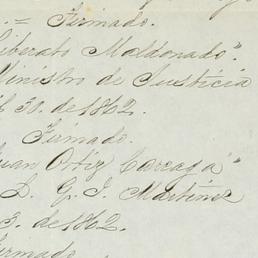 .= Firmado.
Liberato Maldonado".
Ministro de Justicia
31. de 1862.
Firmado.
Juan Ortiz Careaga"
D. G. I. Martinez
3. de 1862.
Firmado